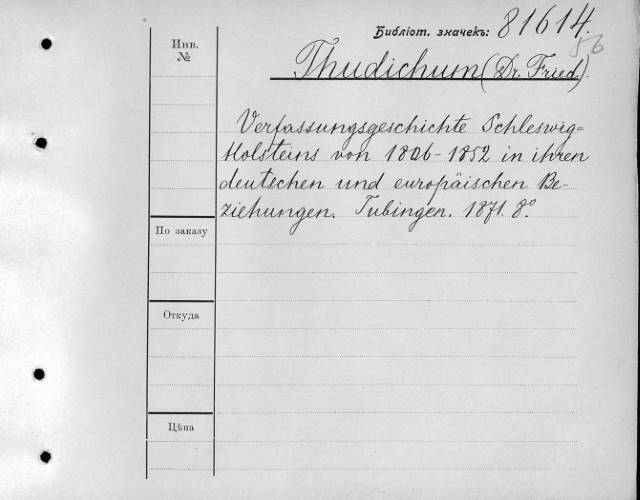 Библіот. значекъ: 81614.
56
Инв.
№
Thudichum (Dr. Fried.).
Verfassungsgeschichte Schleswig=
Holsteins von 1806-1852 in ihren
deutschen und europäischen Be-
ziehungen. Tubingen. 1871. 8°
По заказу
Откуда
Цѣна